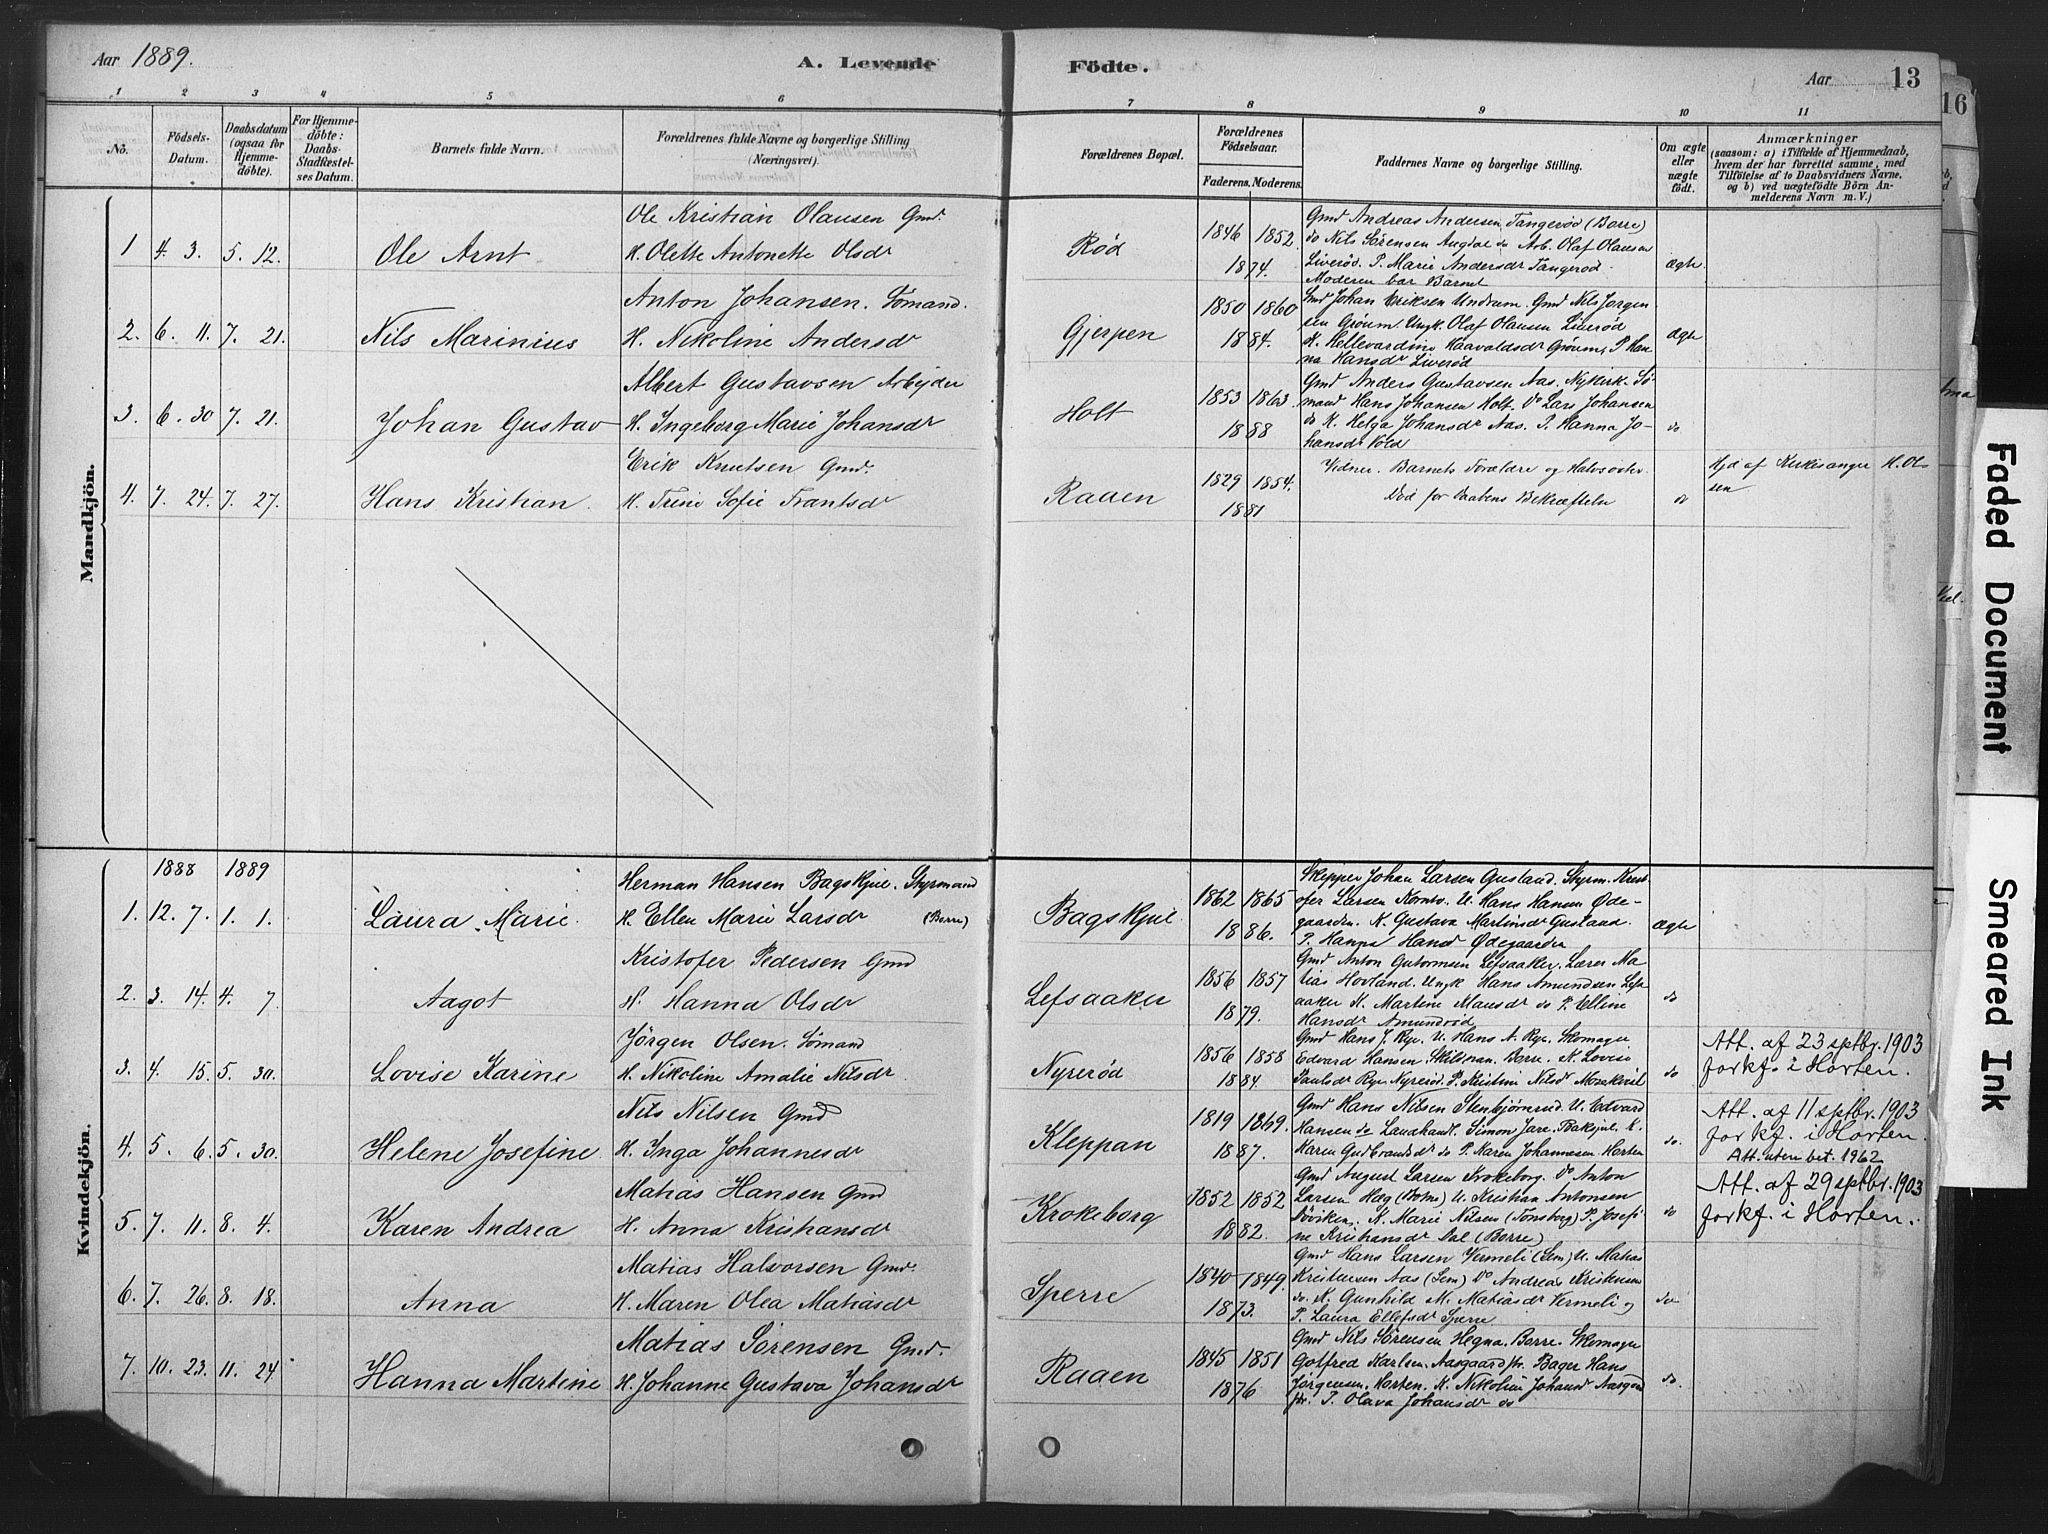 Aar 1889. A. Levende Födte. Aar 13
1 2 3 4 5 6 7 8 9 10 11
No.
Födsels-
Datum.
Daabsdatum
(ogsaa for
Hjemme-
döbte).
For Hjemme-
döbte:
Daabs-
Stadfæstel-
ses Datum.
Barnets fulde Navn.
Forældrenes fulde Navne og borgerlige Stilling
(Næringsvei).
Forældrenes Bopæl.
Forældrenes
Födselsaar.
Faderens. Moderens.
Faddernes Navne og borgerlige Stilling.
Om ægte
eller
uægte
födt.
Anmærkninger
(saasom: a) i Tilfælde af Hjemmedaab,
hvem der har forrettet samme, med
Tilföielse af to Daabsvidners Navne,
og b) ved uægtefödte Börn An-
melderens Navn m. V.)
Mandkjön.
Ole Kristian Olausen Gmd.
1 4. 3. 5. 12. Ole Arnt H. Olette Antonette Olsdr Rød 1846 1852. 1874.
Gmd Andreas Andersen Tangerød (Borre)
do Nils Sørensen Augdal do Arb. Olaf Olausen
Liverød. P. Marie Andersdr Tangerød.
Moderen bar Barnet
ægte.
Anton Johansen. Sømand.
2. 6. 11. 7. 21. Nils Marinius H. Nikoline Andersdr Gjerpen 1850 1860 1884.
Gmd Johan Eriksen Undrum. Gmd Nils Jorgen
sen Grøum. Ungk. Olaf Olausen Liverød
K. Hellevardine Haavaldsdr Grøum, P. Han
na Hansdr Liverød
ægte
Albert Gustavsen Arbejder
3. 6. 30 7. 21. Johan Gustav H. Ingeborg Marie Johansdr Holt 1853 1863. 1888
Gmd Anders Gustavsen Aas. Nykirk. Sø-
mand Hans Johansen Holt. Do Lars Johansen
do K. Helga Johansdr Aas. P. Hanna Jo-
hansdr Vold
do
Erik Knutsen Gmd.
4. 7. 24. 7. 27. Hans Kristian. H. Trine Sofie Frantsdr Raaen 1829 1854. 1881
Vidner. Barnets Forældre og Halvsøster.
Død før Daabens Bekræftelse
do
Hjd af Kirkesanger H. Ol-
sen
Kvindekjön.
1888 1889
Herman Hansen Bagskjul. Styrmand
1. 12. 7. 1. 1. Laura Marie. H. Ellen Marie Larsdr (Borre) Bagskjul 1862 1865 1886.
Skipper Johan Larsen Gusland. Styrm. Krist
ofer Larsen Kornbo. U. Hans Hansen Øde-
gaarden. K. Gustava Martinsdr Gusland.
P. Hanna Hansd Ødegaarden
ægte
Kristofer Pedersen Gmd
2. 3. 14. 4. 7. Aagot H. Hanna Olsdr Lefsaaker 1856 1857 1879.
Gmd Anton Gutormsen Lefsaaker. Lærer Ma
tias Hovland. Ungk Hans Amundsen Lefs
aaker K. Martine Mausdr do P. Elline
Hansdr Amundrød
do
Jørgen Olsen. Sømand
3. 4. 15. 5. 30. Lovise Karine H. Nikoline Amalie Nilsdr. Nyrerød 1856 1858 1884.
Gmd Hans J. Rye. U. Hans A. Rye. Skomager
Edvard Hansen Skilsnan. Borre. K. Lovise
Paulsdr Rye Nyrerød. P. Kristine Nilsdr Mosekvil
do
Att. af 23 sptbr. 1903
forkf. i Horten.
Nils Nilsen Gmd
4. 5. 6. 5. 30. Helene Josefine H. Inga Johannesdr Kleppan 1819 1869. 1887.
Gmd Hans Nilsen Stenbjørnrud. U. Edvard
Hansen do Landhandl. Simon Jare. Bakskjul. K.
Karen Gudbrandsdr do P. Karen Johannesen Horten
do.
Att. af 11 sptbr. 1903
forkf. i Horten.
Att. uten bet. 1962
Matias Hansen Gmd
5. 7. 11. 8. 4. Karen Andrea H. Anna Kristiansdr Krokeborg 1852 1852 1882.
Gmd August Larsen Krokeborg. Do Anton
Larsen Hæg (Botne) U. Kristian Antonsen
Løviken. K. Marie Nilsen (Tønsberg) P. Josefi
ne Kristiansdr Dal (Borre)
do
Att. af 29 sptbr. 1903
forkf. i Horten.
Matias Halvorsen Gmd.
6. 7. 26. 8. 18. Anna H. Maren Olea Matiasdr Sperre 1840 1849. 1873.
Gmd Hans Larsen Vermeli (Sem) U. Matias
Kristensen Aas (Sem) Do Andreas Kristensen
do. K. Gunhild M. Matiasdr Vermeli og
P. Laura Ellefsdr Sperre
do
Matias Sørensen Gmd.
7. 10. 23. 11. 24 Hanna Martine H. Johanne Gustava Johansdr Raaen 1845 1851 1876
Gmd Nils Sørensen Hegna. Borre. Skomager
Gotfred Karlsen. Aasgaardstr. Bager Hans
Jørgensen. Horten. K. Nikoline Johansd Aasgard
str. P. Olava Johansdr do
do.
16
Faded Document
Smeared Ink